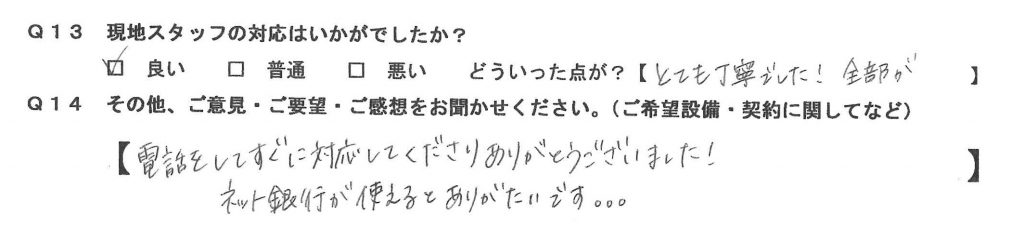 Q13 現地スタッフの対応はいかがでしたか？
☑ 良い □ 普通 □ 悪い どういった点が？【とても丁寧でした！全部が】
Q14 その他、ご意見・ご要望・ご感想をお聞かせください。（ご希望設備・契約に関してなど）
【電話をしてすぐに対応してくださりありがとうございました！
ネット銀行が使えるとありがたいです。。。】